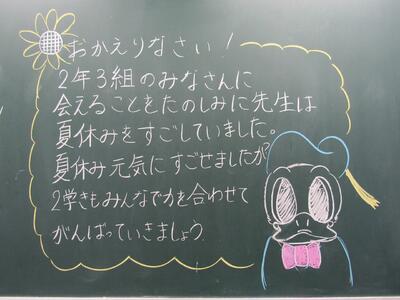 おかえりなさい!
2年3組のみなさんに
会えることをたのしみに先生は
夏休みをすごしていました。
夏休み元気にすごせましたか
2学きもみんなで力を合わせて
がんばっていきましょう.